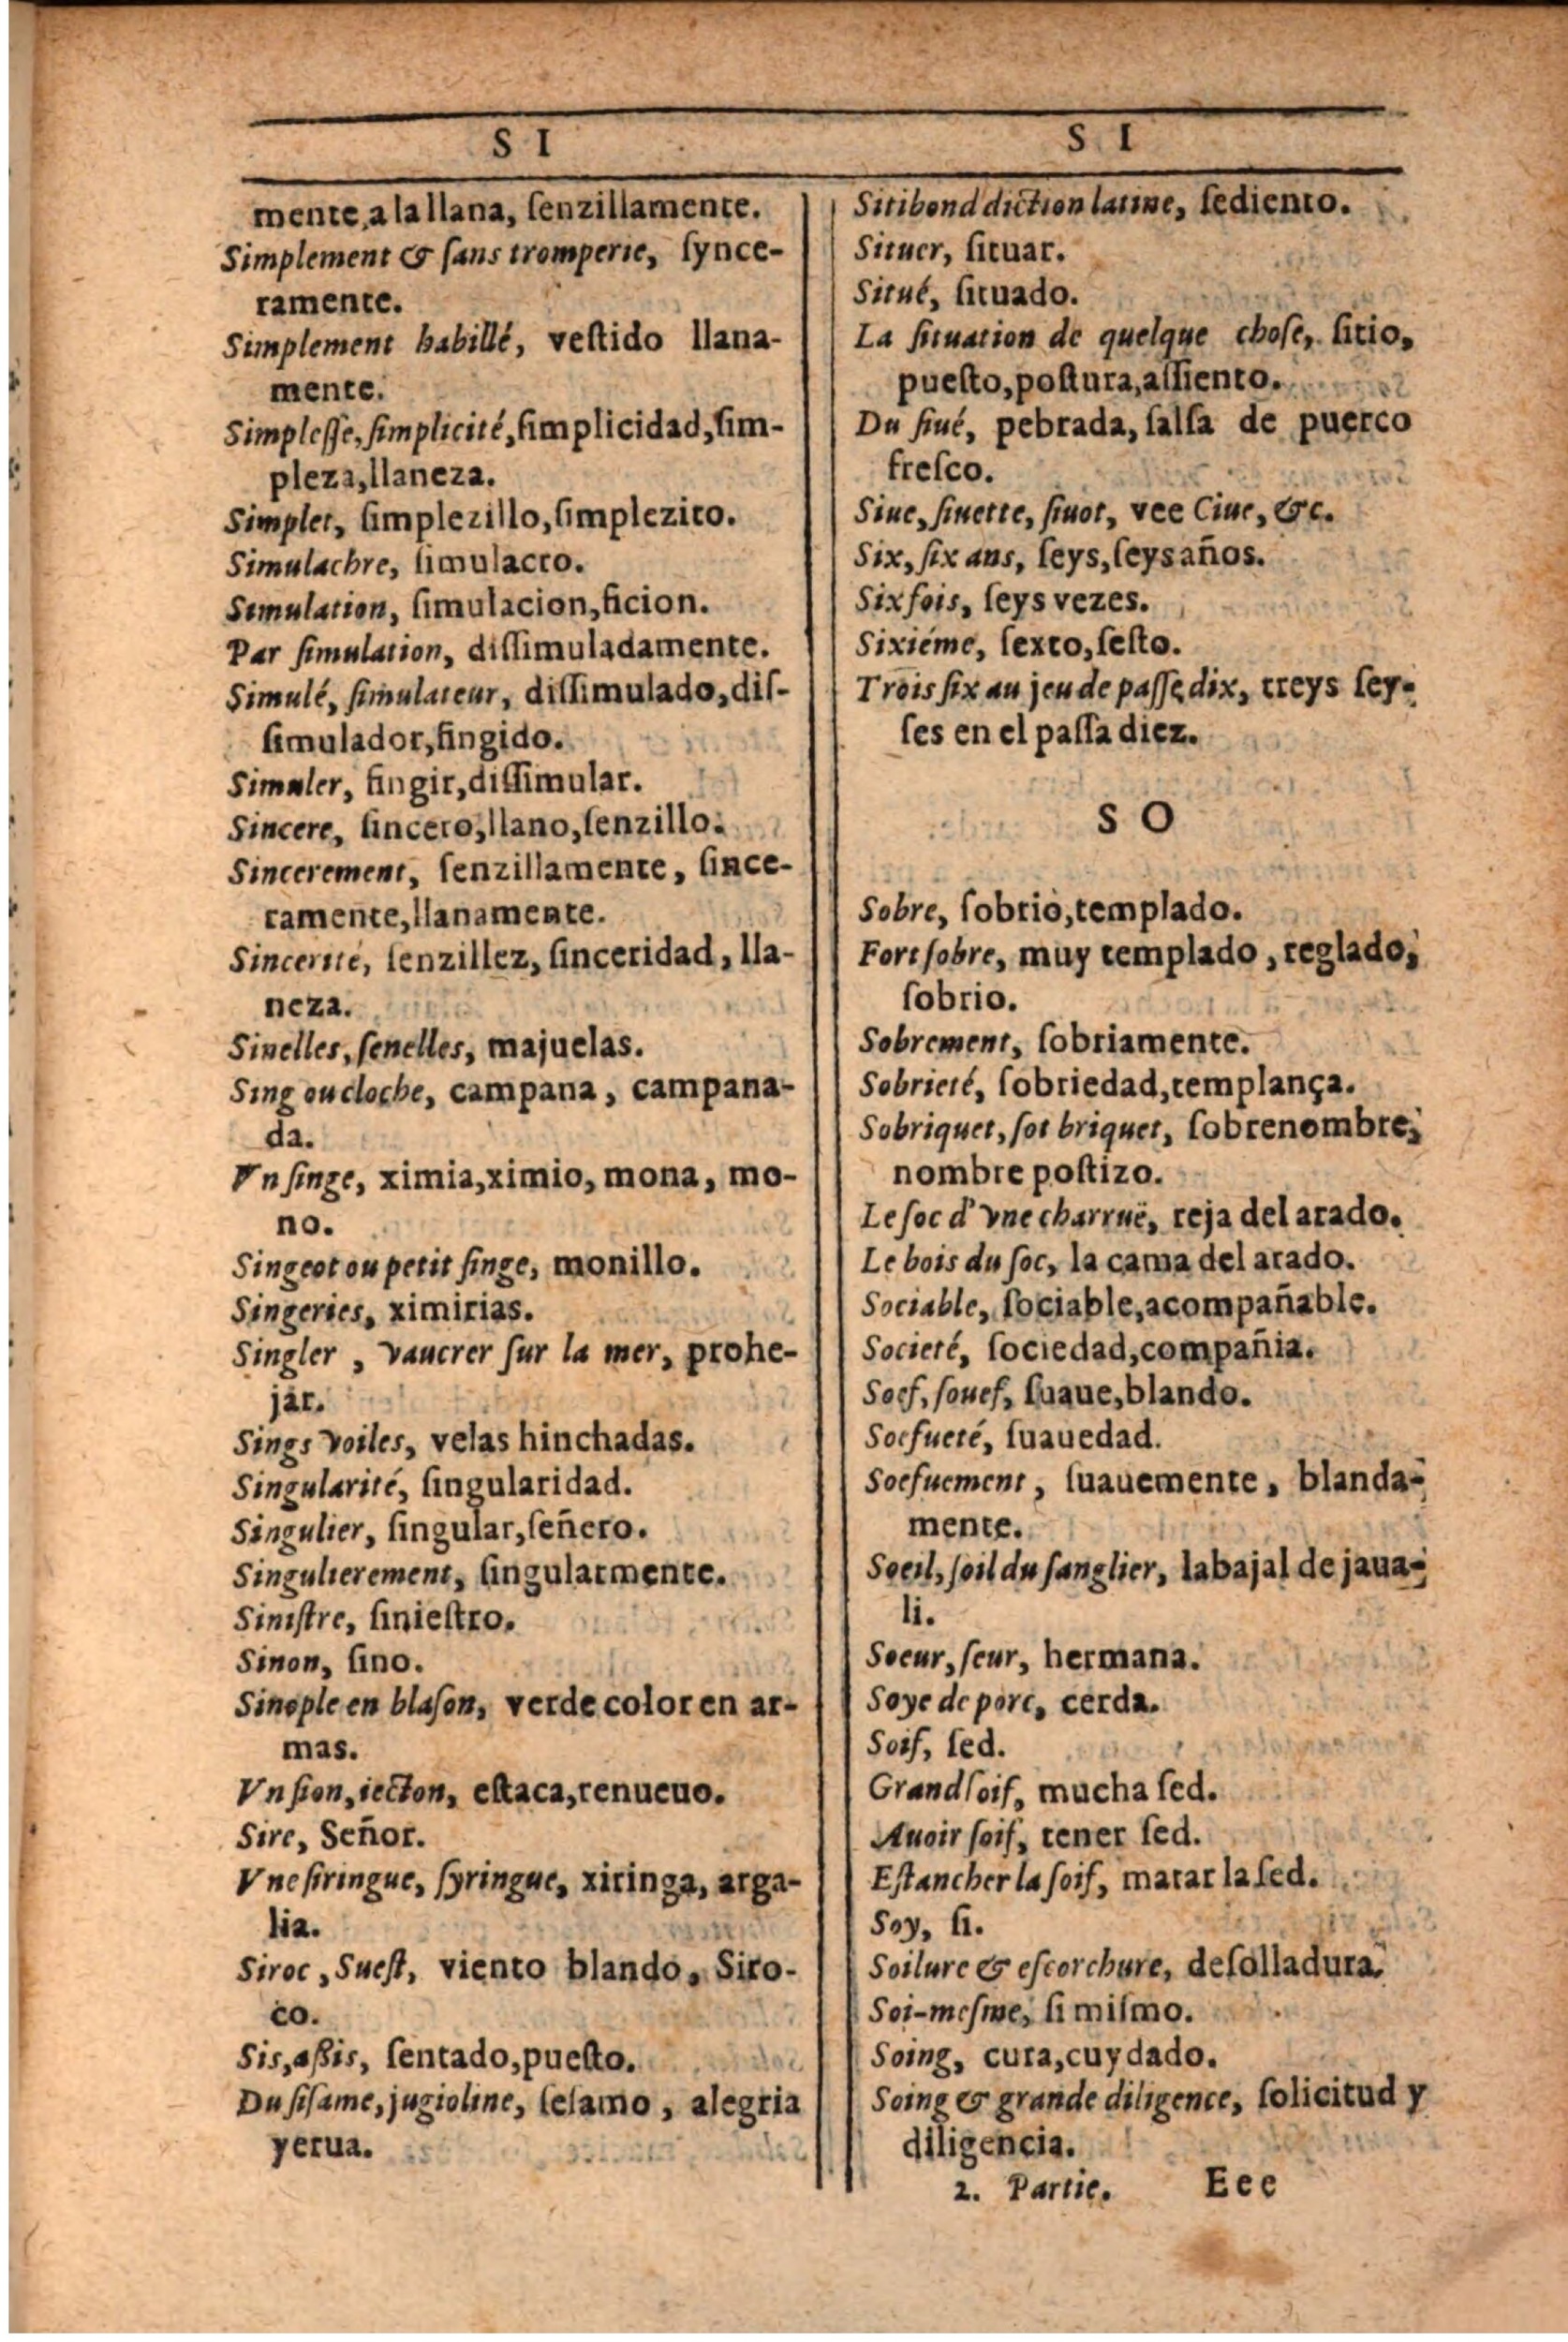 S I
mente, a la llana, ſenzillamente.
Simplement & ſans tromperie, ſynce-
ramente.
Simplement habillé, veſtido llana-
mente.
Simpleſſe, ſimplicité, ſimplicidad, ſim-
pleza, llaneza.
Simplet, ſimplezillo, ſimplezito.
Simulachre, ſimulacro.
Simulation, ſimulacion, ficion.
Par ſimulation, diſſimuladamente.
Simulé, ſimulateur, diſſimulado, diſ-
ſimulador, fingido.
Simuler, fingir, diſſimular.
Sincere, ſincero, llano, ſenzillo.
Sincerement, ſenzillamente, ſince-
ramente, llanamente.
Sincerité, ſenzillez, ſinceridad, lla-
neza.
Sinelles, ſenelles, majuelas.
Sing ou cloche, campana, campana-
da.
Vn ſinge, ximia, ximio, mona, mo-
no.
Singeot ou petit ſinge, monillo.
Singeries, ximirias.
Singler, vaucrer ſur la mer, prohe-
jar.
Sings voiles, velas hinchadas.
Singularité, ſingularidad.
Singulier, ſingular, ſeñero.
Singulierement, ſingularmente.
Siniſtre, ſinieſtro.
Sinon, ſino.
Sinople en blaſon, verde color en ar-
mas.
Vn ſion, iecton, eſtaca, renueuo.
Sire, Señor.
Vne ſiringue, ſyringue, xiringa, arga-
lia.
Siroc, Sueſt, viento blando, Siro-
co.
Sis, aßis, ſentado, pueſto.
Du ſiſame, jugioline, ſeſamo, alegria
yerua.
S I
Sitibond diction latine, ſediento.
Situer, ſituar.
Situé, ſituado.
La ſituation de quelque choſe, ſitio,
pueſto, poſtura, aſſiento.
Du ſiué, pebrada, ſalſa de puerco
freſco.
Siue, ſiuette, ſiuot, vee Ciue, &c.
Six, ſix ans, ſeys, ſeys años.
Six fois, ſeys vezes.
Sixiéme, ſexto, ſeſto.
Trois ſix au jeu de paſſe dix, treys ſey-
ſes en el paſſa diez.
S O
Sobre, ſobrio, templado.
Fort ſobre, muy templado, reglado,
ſobrio.
Sobrement, ſobriamente.
Sobrieté, ſobriedad, templança.
Sobriquet, ſot briquet, ſobrenombre,
nombre poſtizo.
Le ſoc d'vne charruë, reja del arado.
Le bois du ſoc, la cama del arado.
Sociable, ſociable, acompañable.
Societé, ſociedad, compañia.
Soef, ſouef, ſuaue, blando.
Soefueté, ſuauedad.
Soefuement, ſuauemente, blanda-
mente.
Soeil, ſoil du ſanglier, labajal de jaua-
li.
Soeur, ſeur, hermana.
Soye de porc, cerda.
Soif, ſed.
Grand ſoif, mucha ſed.
Auoir ſoif, tener ſed.
Eſtancher la ſoif, matar la ſed.
Soy, ſi.
Soilure & eſcorchure, deſolladura.
Soi-meſme, ſi miſmo.
Soing, cura, cuydado.
Soing & grande diligence, ſolicitud y
diligencia.
2. Partie. Eee